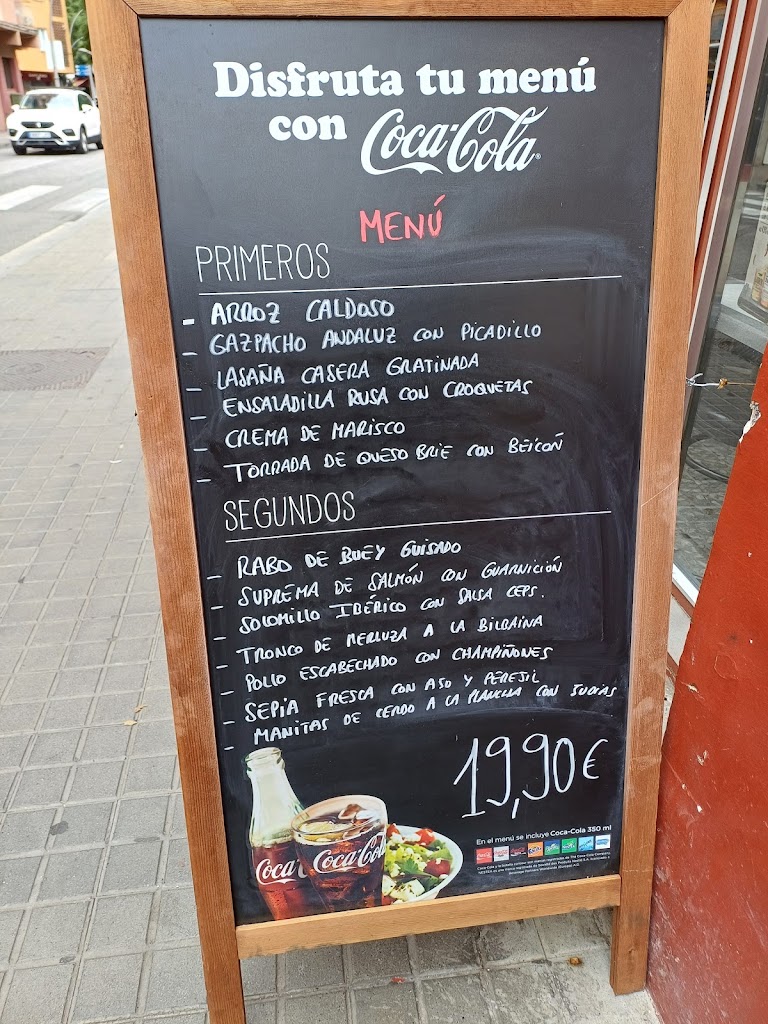 Disfruta tu menú
con Coca-Cola
MENÚ
PRIMEROS
- ARROZ CALDOSO
- GAZPACHO ANDALUZ CON PICADILLO
- LASAÑA CASERA GRATINADA
- ENSALADILLA RUSA CON CROQUETAS
- CREMA DE MARISCO
- TORRADA DE QUESO BRIE CON BEICOÑ
SEGUNDOS
- RABO DE BUEY GUISADO
- SUPREMA DE SALMÓN CON GUARNICIÓN
- SOLOMILLO IBÉRICO CON SALSA CEPS.
- TRONCO DE MERLUZA A LA BILBAINA
- POLLO ESCABECHADO CON CHAMPIÑONES
- SEPIA FRESCA CON AJO Y PEREJIL
- MANITAS DE CERDO A LA PLANCHA CON JUDIAS
19,90€
En el menú se incluye Coca-Cola 350 ml
Coca-Cola
Coca-Cola